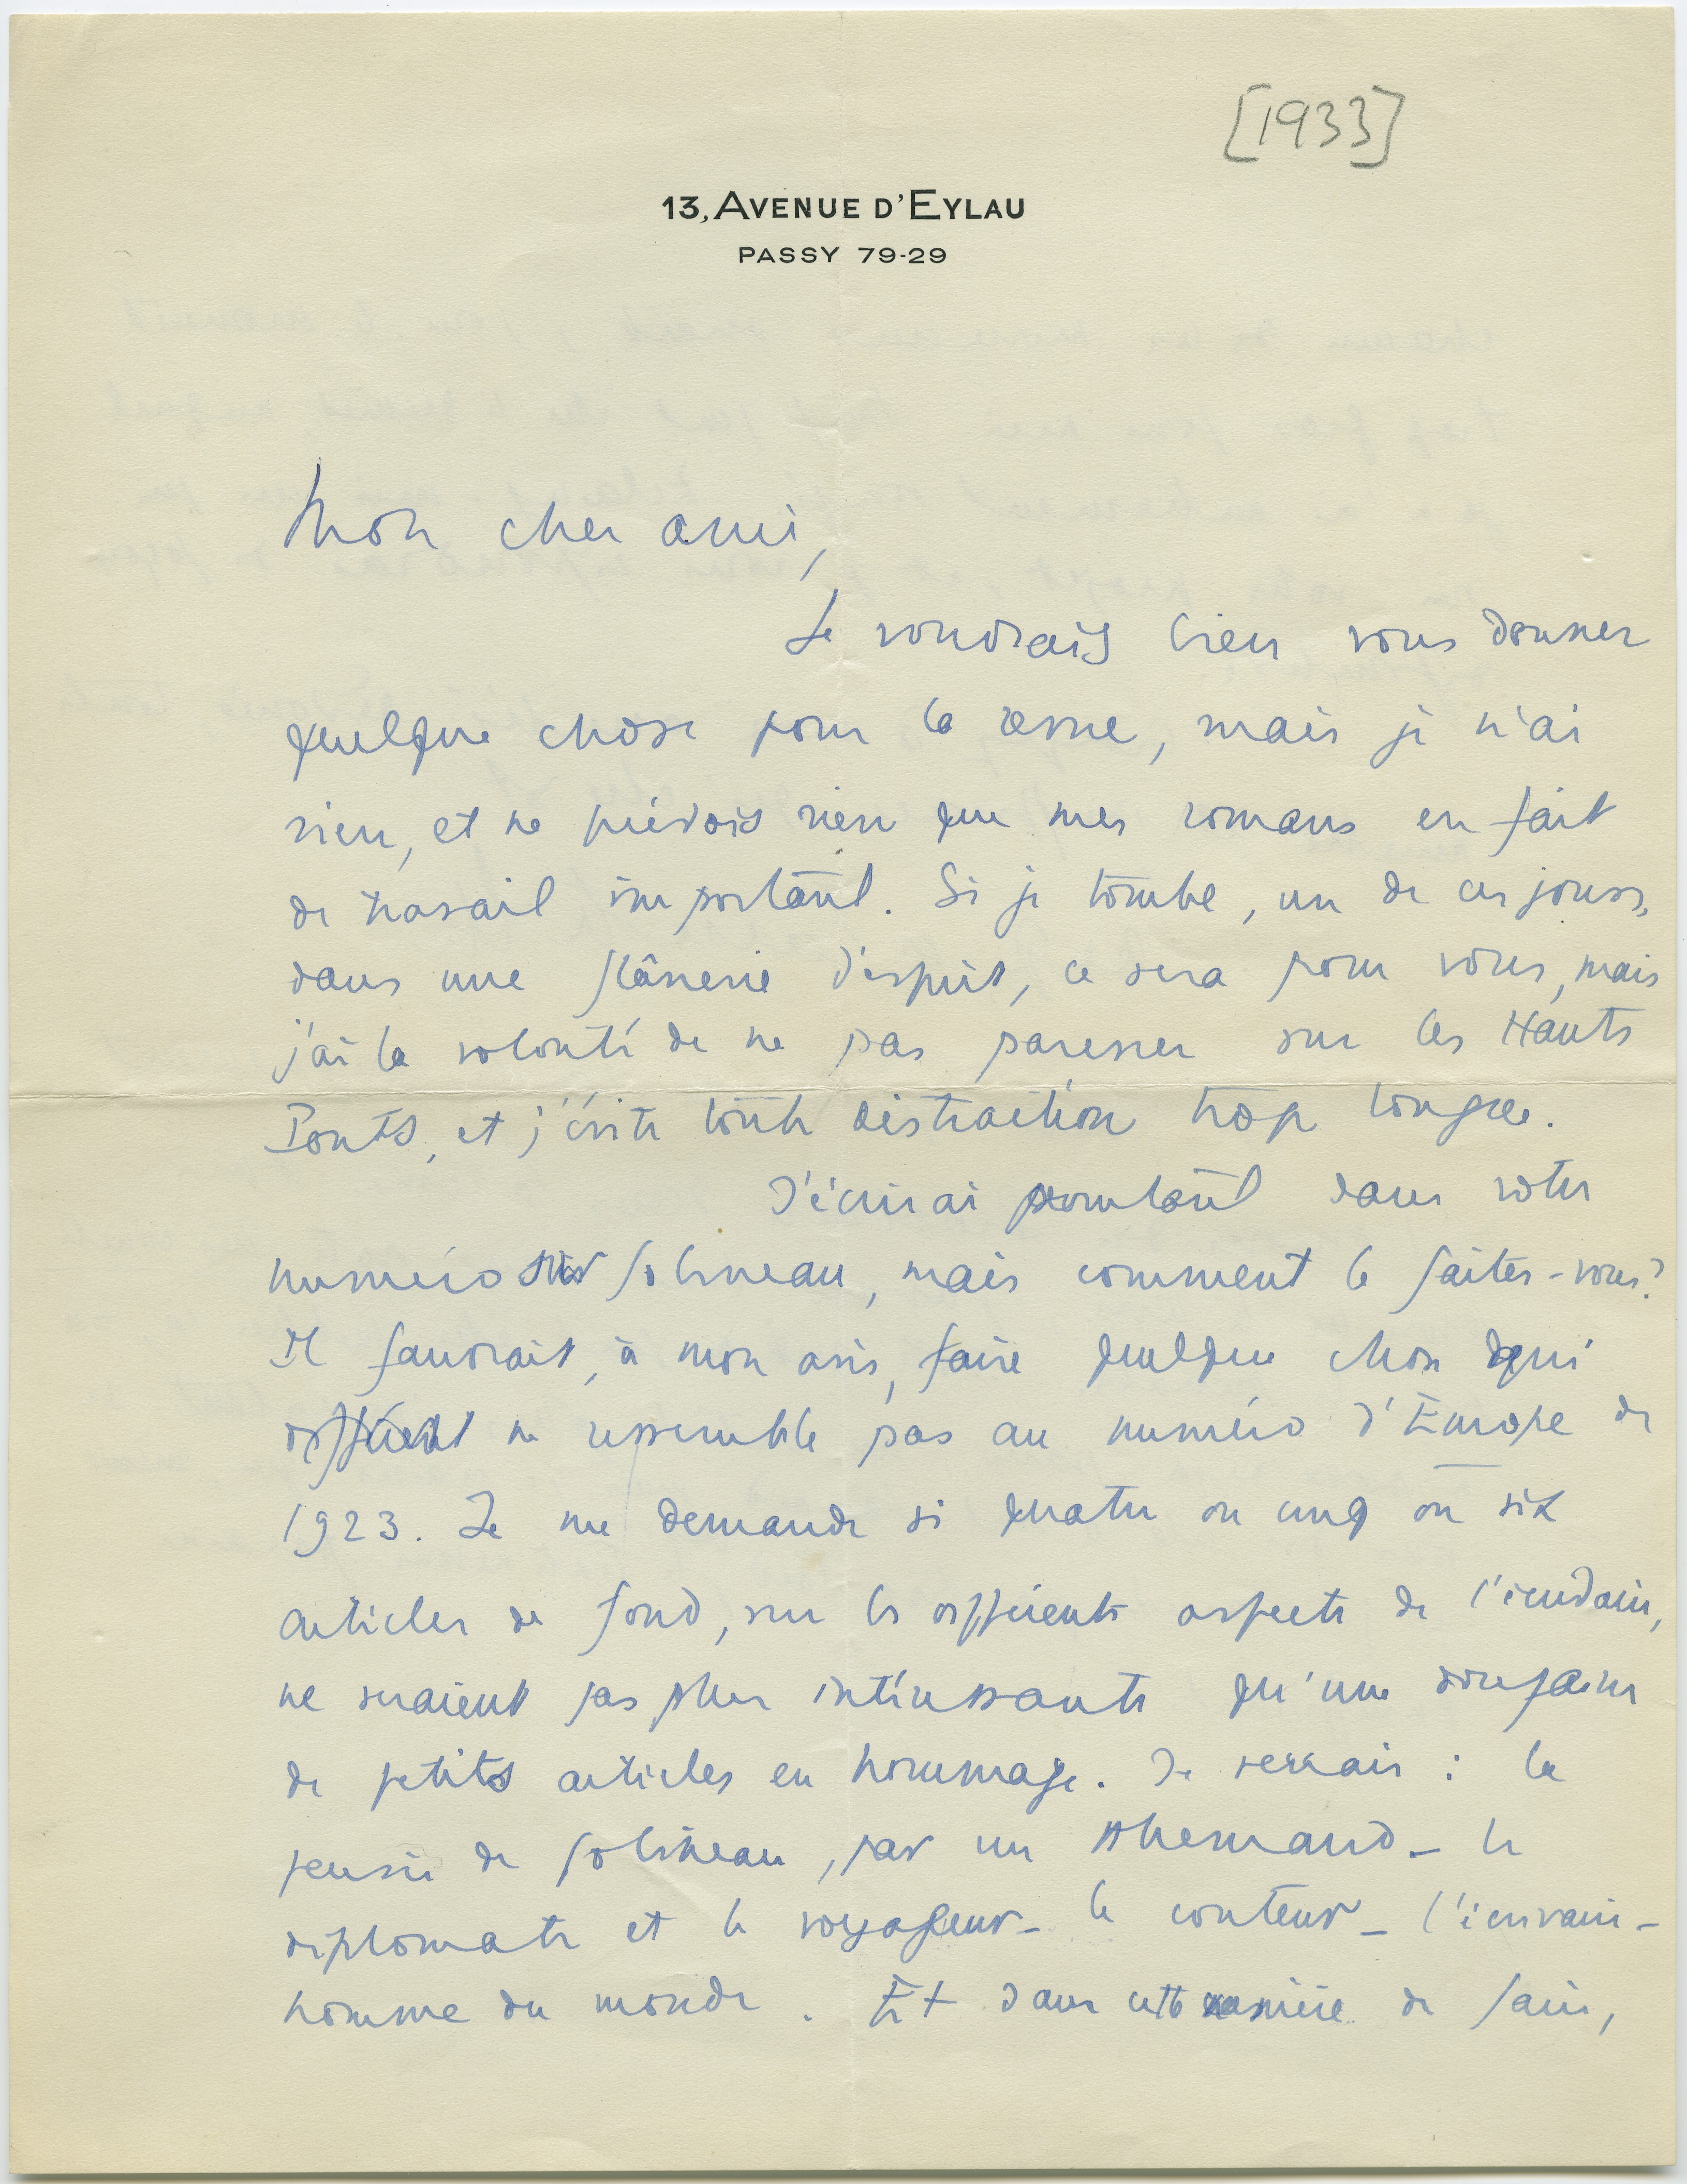 [1933]
13, AVENUE D'EYLAU
PASSY 79-29
Mon cher ami,
Je voudrais bien vous donner
quelque chose pour la revue, mais je n'ai
rien, et ne prévois rien que mes romans en fait
de travail important. Si je tombe, un de ces jours,
dans une flânerie d'esprit, ce sera pour vous, mais
j'ai la volonté de ne pas paresser sur les Hauts
Ponts, et j'évite toute distraction trop longue.
J'écrirai pourtant dans votre
numéro sur Gobineau, mais comment le faites-vous?
Il faudrait, à mon avis, faire quelque chose qui
ne ressemble pas au numéro d'Europe de
1923. Je me demande si quatre ou cinq ou six
articles de fond, sur les différents aspects de l'écrivain,
ne seraient pas plus intéressants qu'une douzaine
de petits articles en hommage. Je verrais : la
pensée de Gobineau, par un Allemand - le
diplomate et le voyageur - le conteur - l'écrivain -
homme du monde. Et dans cette manière de faire,